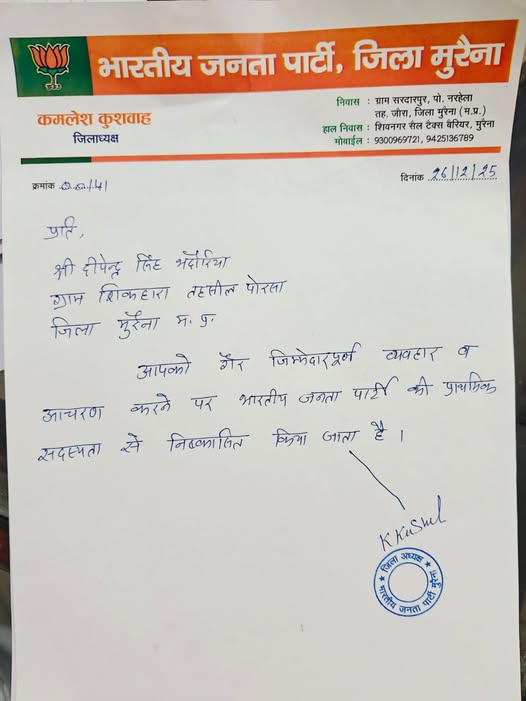 भारतीय जनता पार्टी, जिला मुरैना
कमलेश कुशवाह
जिलाध्यक्ष
निवास : ग्राम सरदारपुर, पो. नरहेला
तह. जौरा, जिला मुरैना (म.प्र.)
हाल निवास : शिवनगर सैल टैक्स बैरियर, मुरैना
मोबाईल : 9300969721, 9425136789
क्रमांक
दिनांक 26/12/25
प्रति,
श्री दीपेन्द्र सिंह भदौरिया
ग्राम शिकहारा तहसील पोरसा
जिला मुरैना म. प्र.
आपको गैर जिम्मेदारपूर्ण व्यवहार व
आचरण करने पर भारतीय जनता पार्टी की प्राथमिक
सदस्यता से निष्कासित किया जाता है ।
जिला अध्यक्ष
भारतीय जनता पार्टी मुरैना